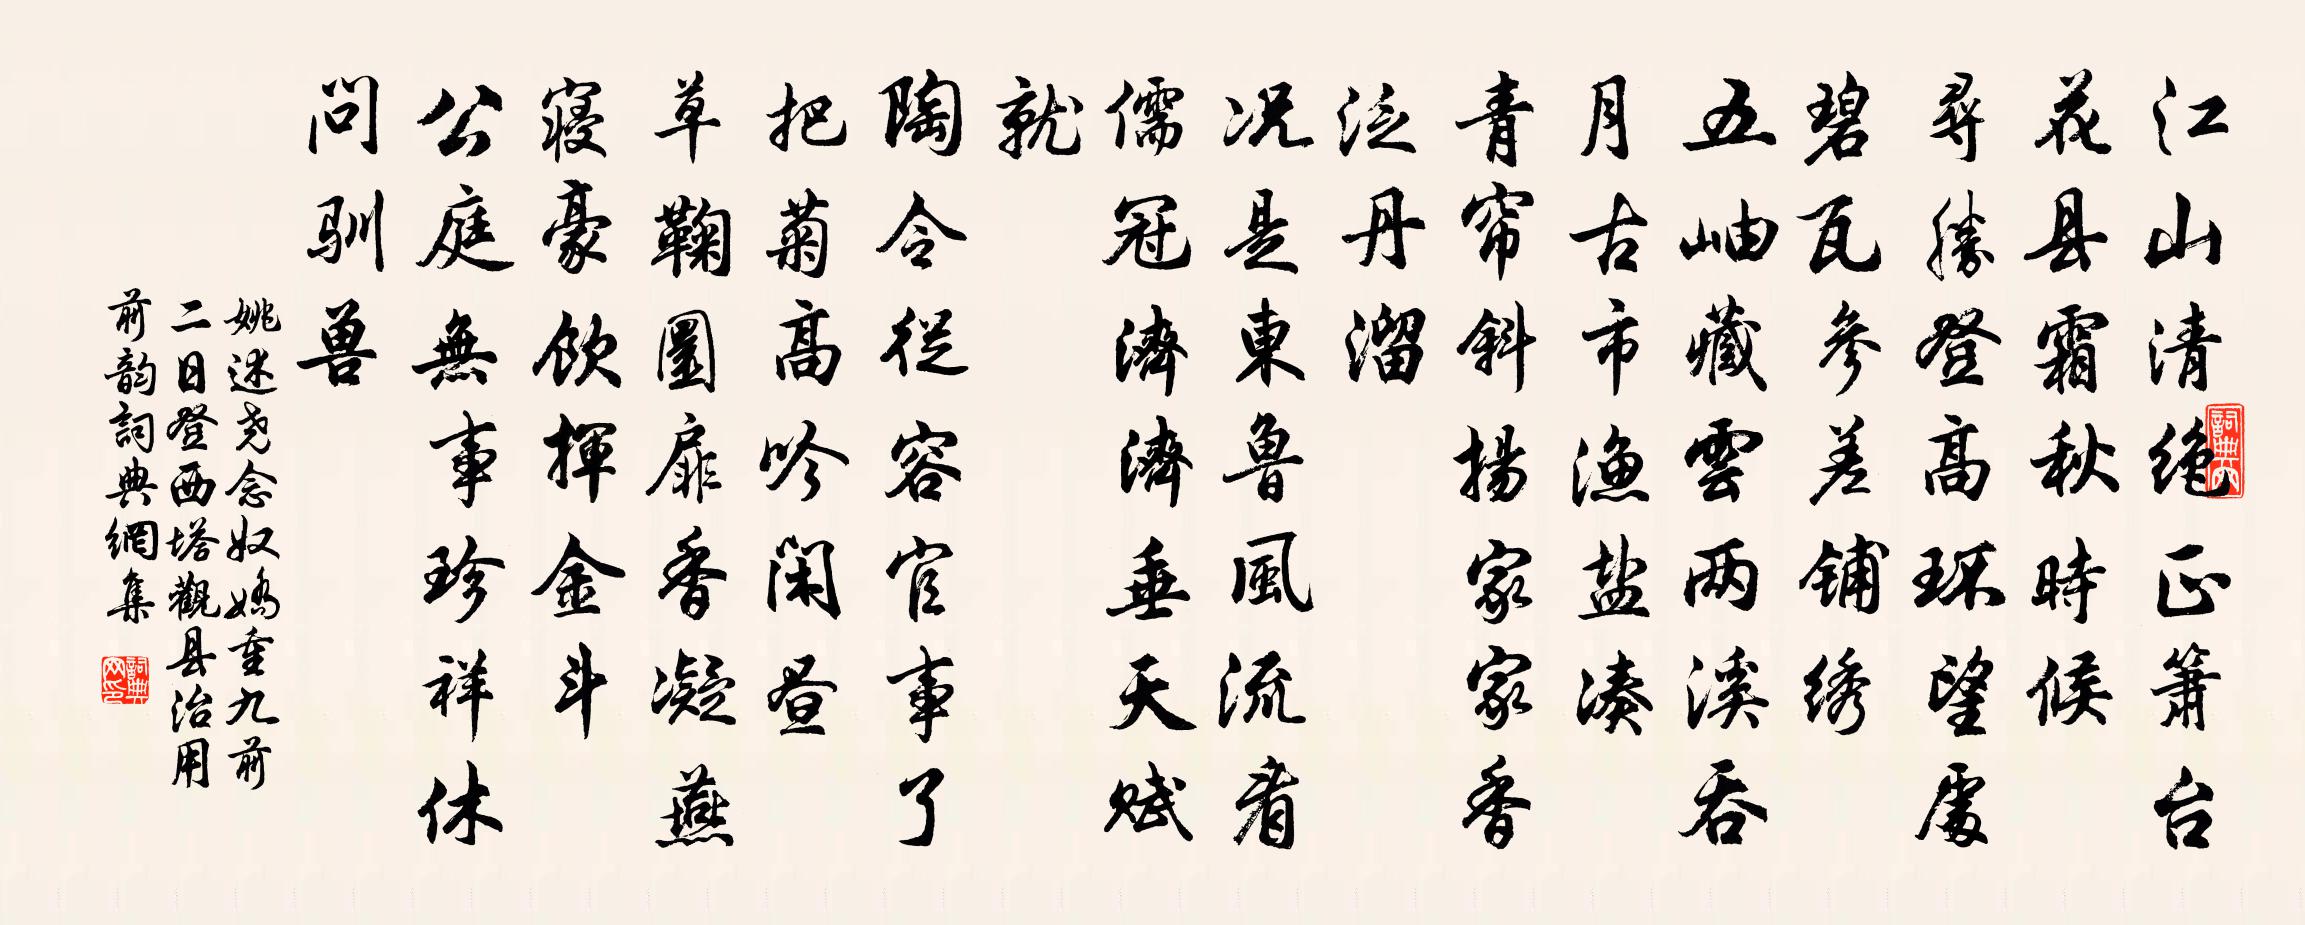 江山清绝正箫台
花县霜秋時候
尋勝登高环望處
碧瓦参差铺绣
五岫藏雲两溪吞
月古市漁盐凑
青帘斜揚家家香
泛丹溜
况是東魯風流看
儒冠濟濟垂天赋
就
陶令從容官事了
把菊高吟闲昼
草鞠圜扉香凝燕
寝豪飲揮金斗
公庭無事珍祥休
问驯兽
姚述尧念奴嬌重九前
二日登西塔觀县治用
前韵詞典網集
詞典
詞典网印